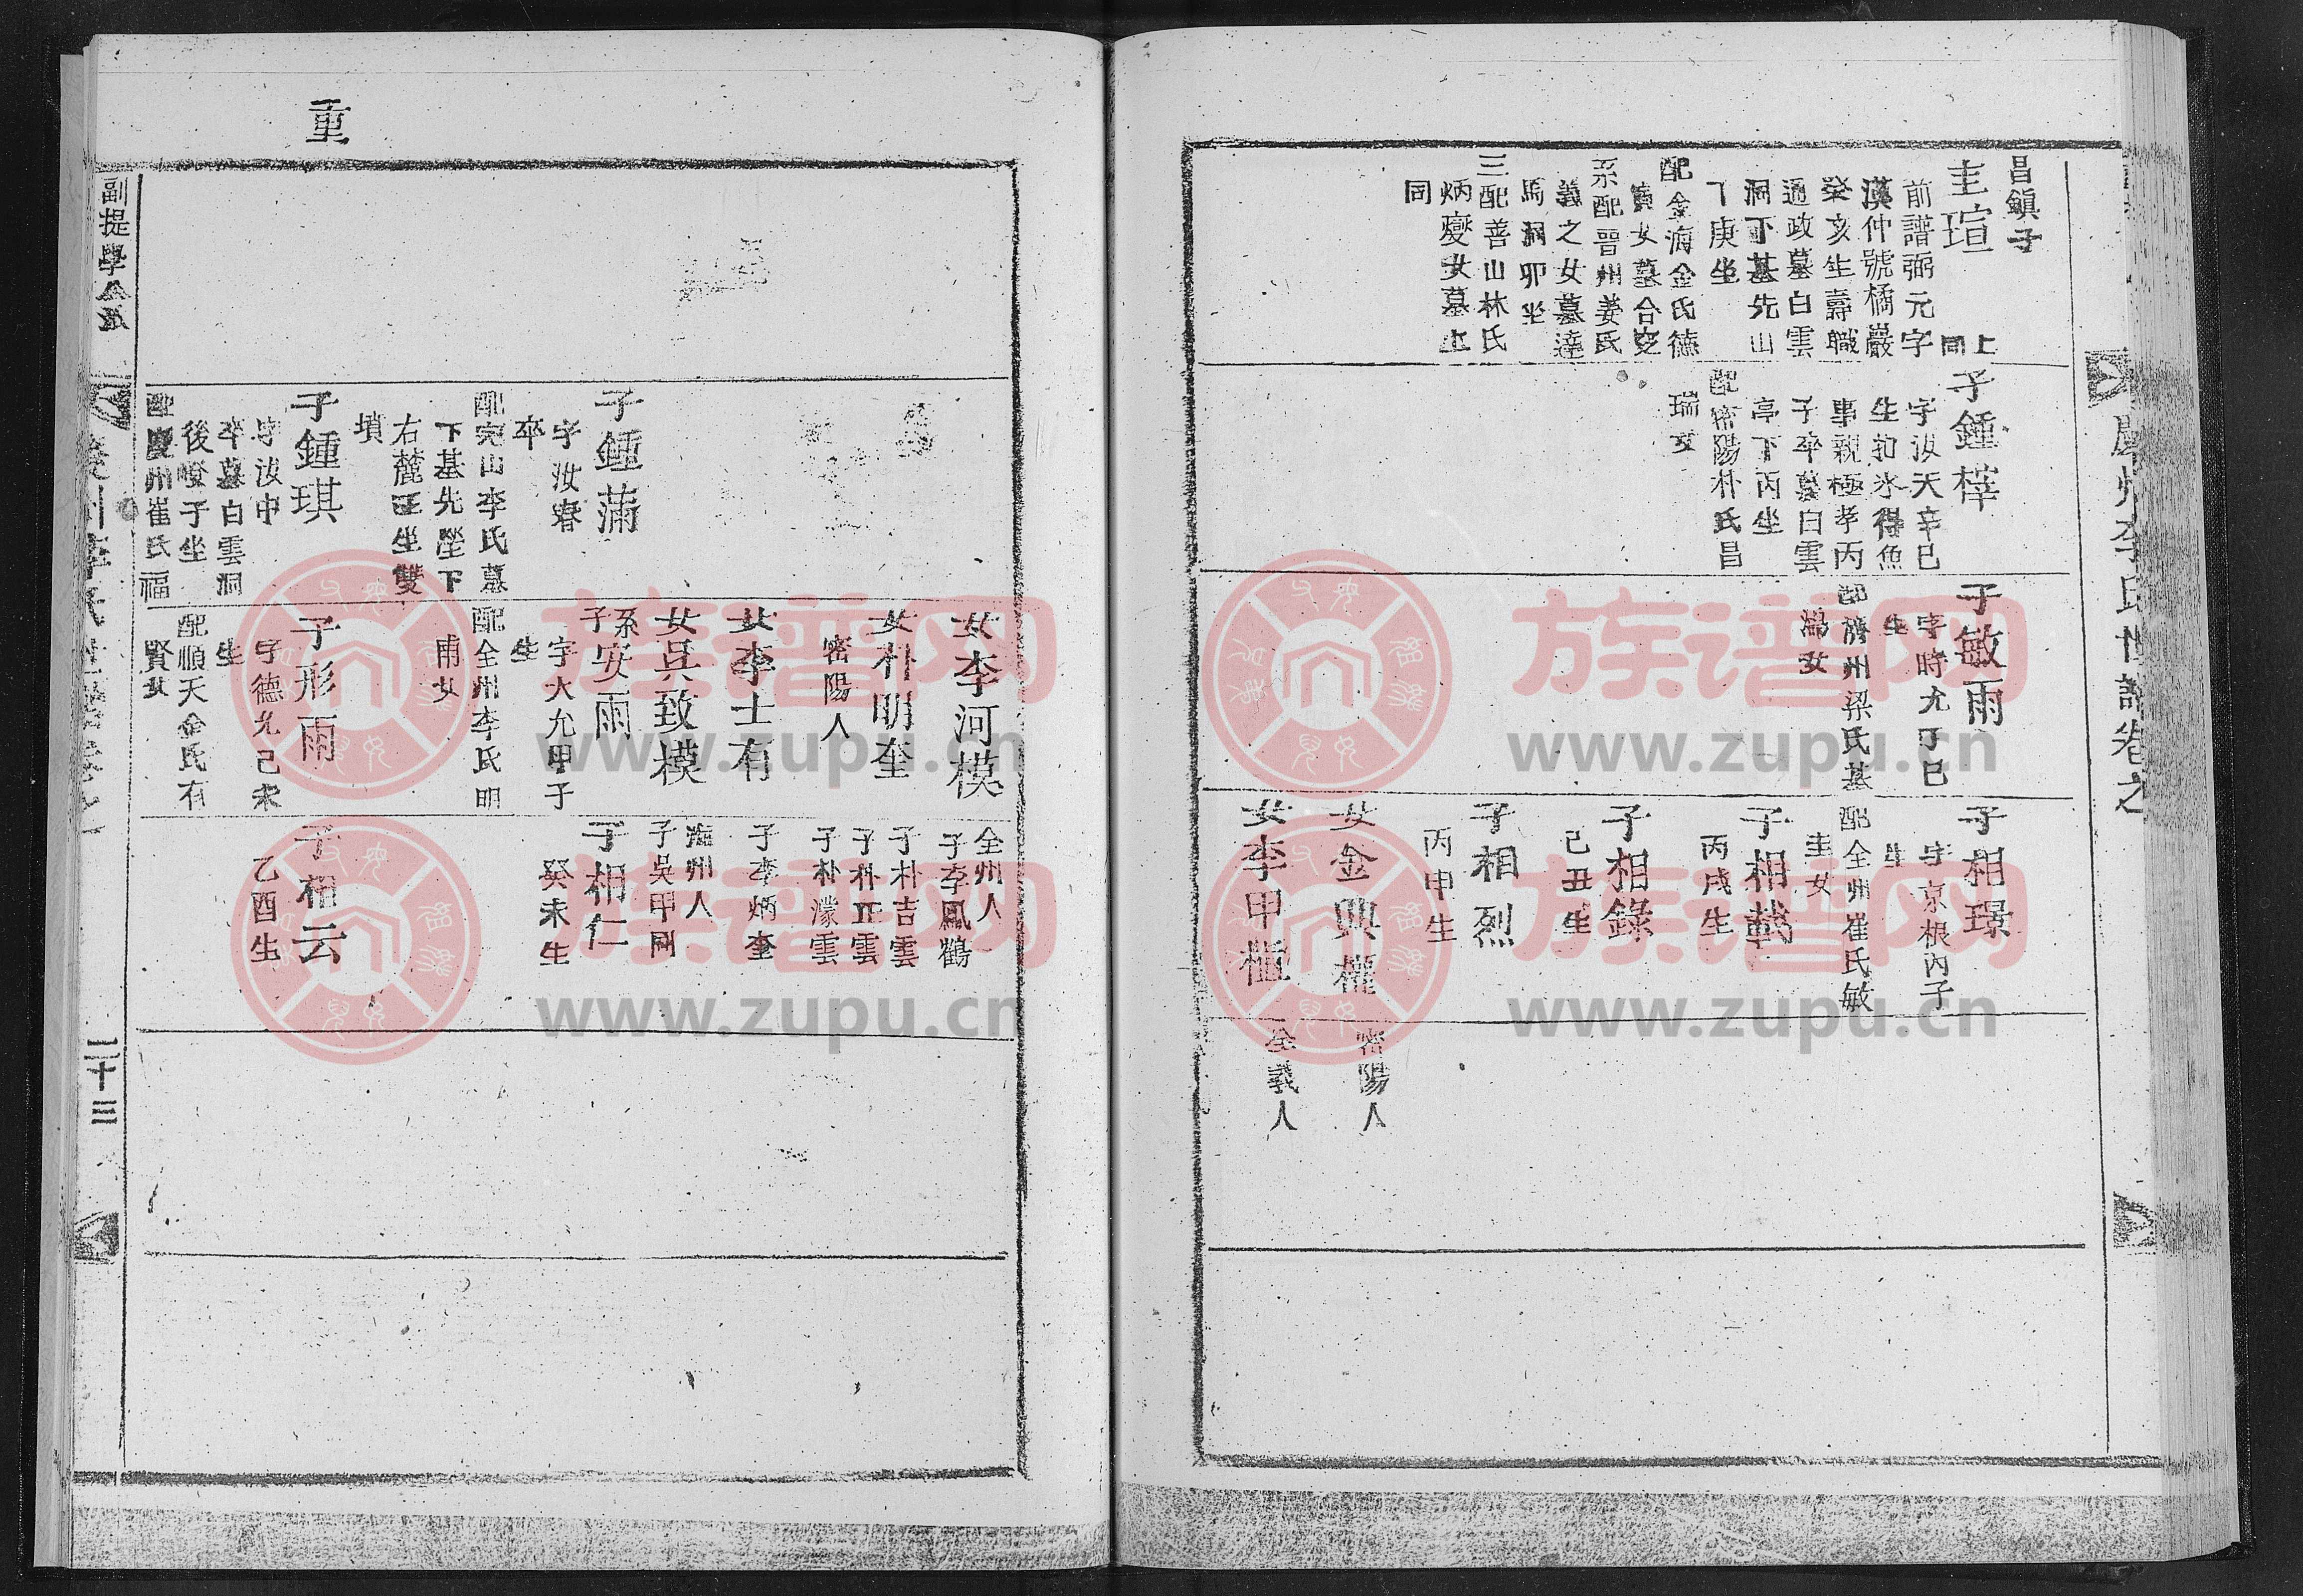 昌鎭子
圭瑄
上同
前譜弼元字
漢仲號橘巖
癸亥生壽職
通政墓白雲
洞下基先山
丁庚坐
配金海金氏德
女墓合窆
系配晋州姜氏
義之女墓達
馬洞卯坐
三配善山林氏
炳燮女墓上
同
子鍾
字汝天辛巳
生扣氷得魚
事親極孝丙
子卒墓白雲
亭下丙坐
配密陽朴氏昌
瑞女
子敏雨
字時允丁巳
生
配濟州梁氏基
女
子相璟
字京根丙子
生
配全州崔氏敏
圭女
子相載
丙戌生
子相錄
己丑生
子相烈
丙申生
女金興權
密陽人
女李甲權
全義人
女李河模
全州人
子李鳳鶴
女朴明奎
密陽人
子朴吉雲
子朴正雲
子朴濛雲
女李士有
子李炳奎
女吳致模
州人
子吳甲
子鍾蒲
字汝春
卒
配完山李氏墓
下基先塋下
右麓坐雙
墳
系子安雨
字大允甲子
生
配全州李氏明
甫女
子相仁
癸未生
子鍾琪
字汝中
卒墓白雲洞
後嶝子坐
配慶州崔氏福
子形雨
字德允己未
生
配順天金氏有
賢女
子相云
乙酉生
重
副提學公派
二十三
族谱网
www.zupu.cn
族谱网
www.zupu.cn
族谱网
www.zupu.cn
族谱网
www.zupu.cn